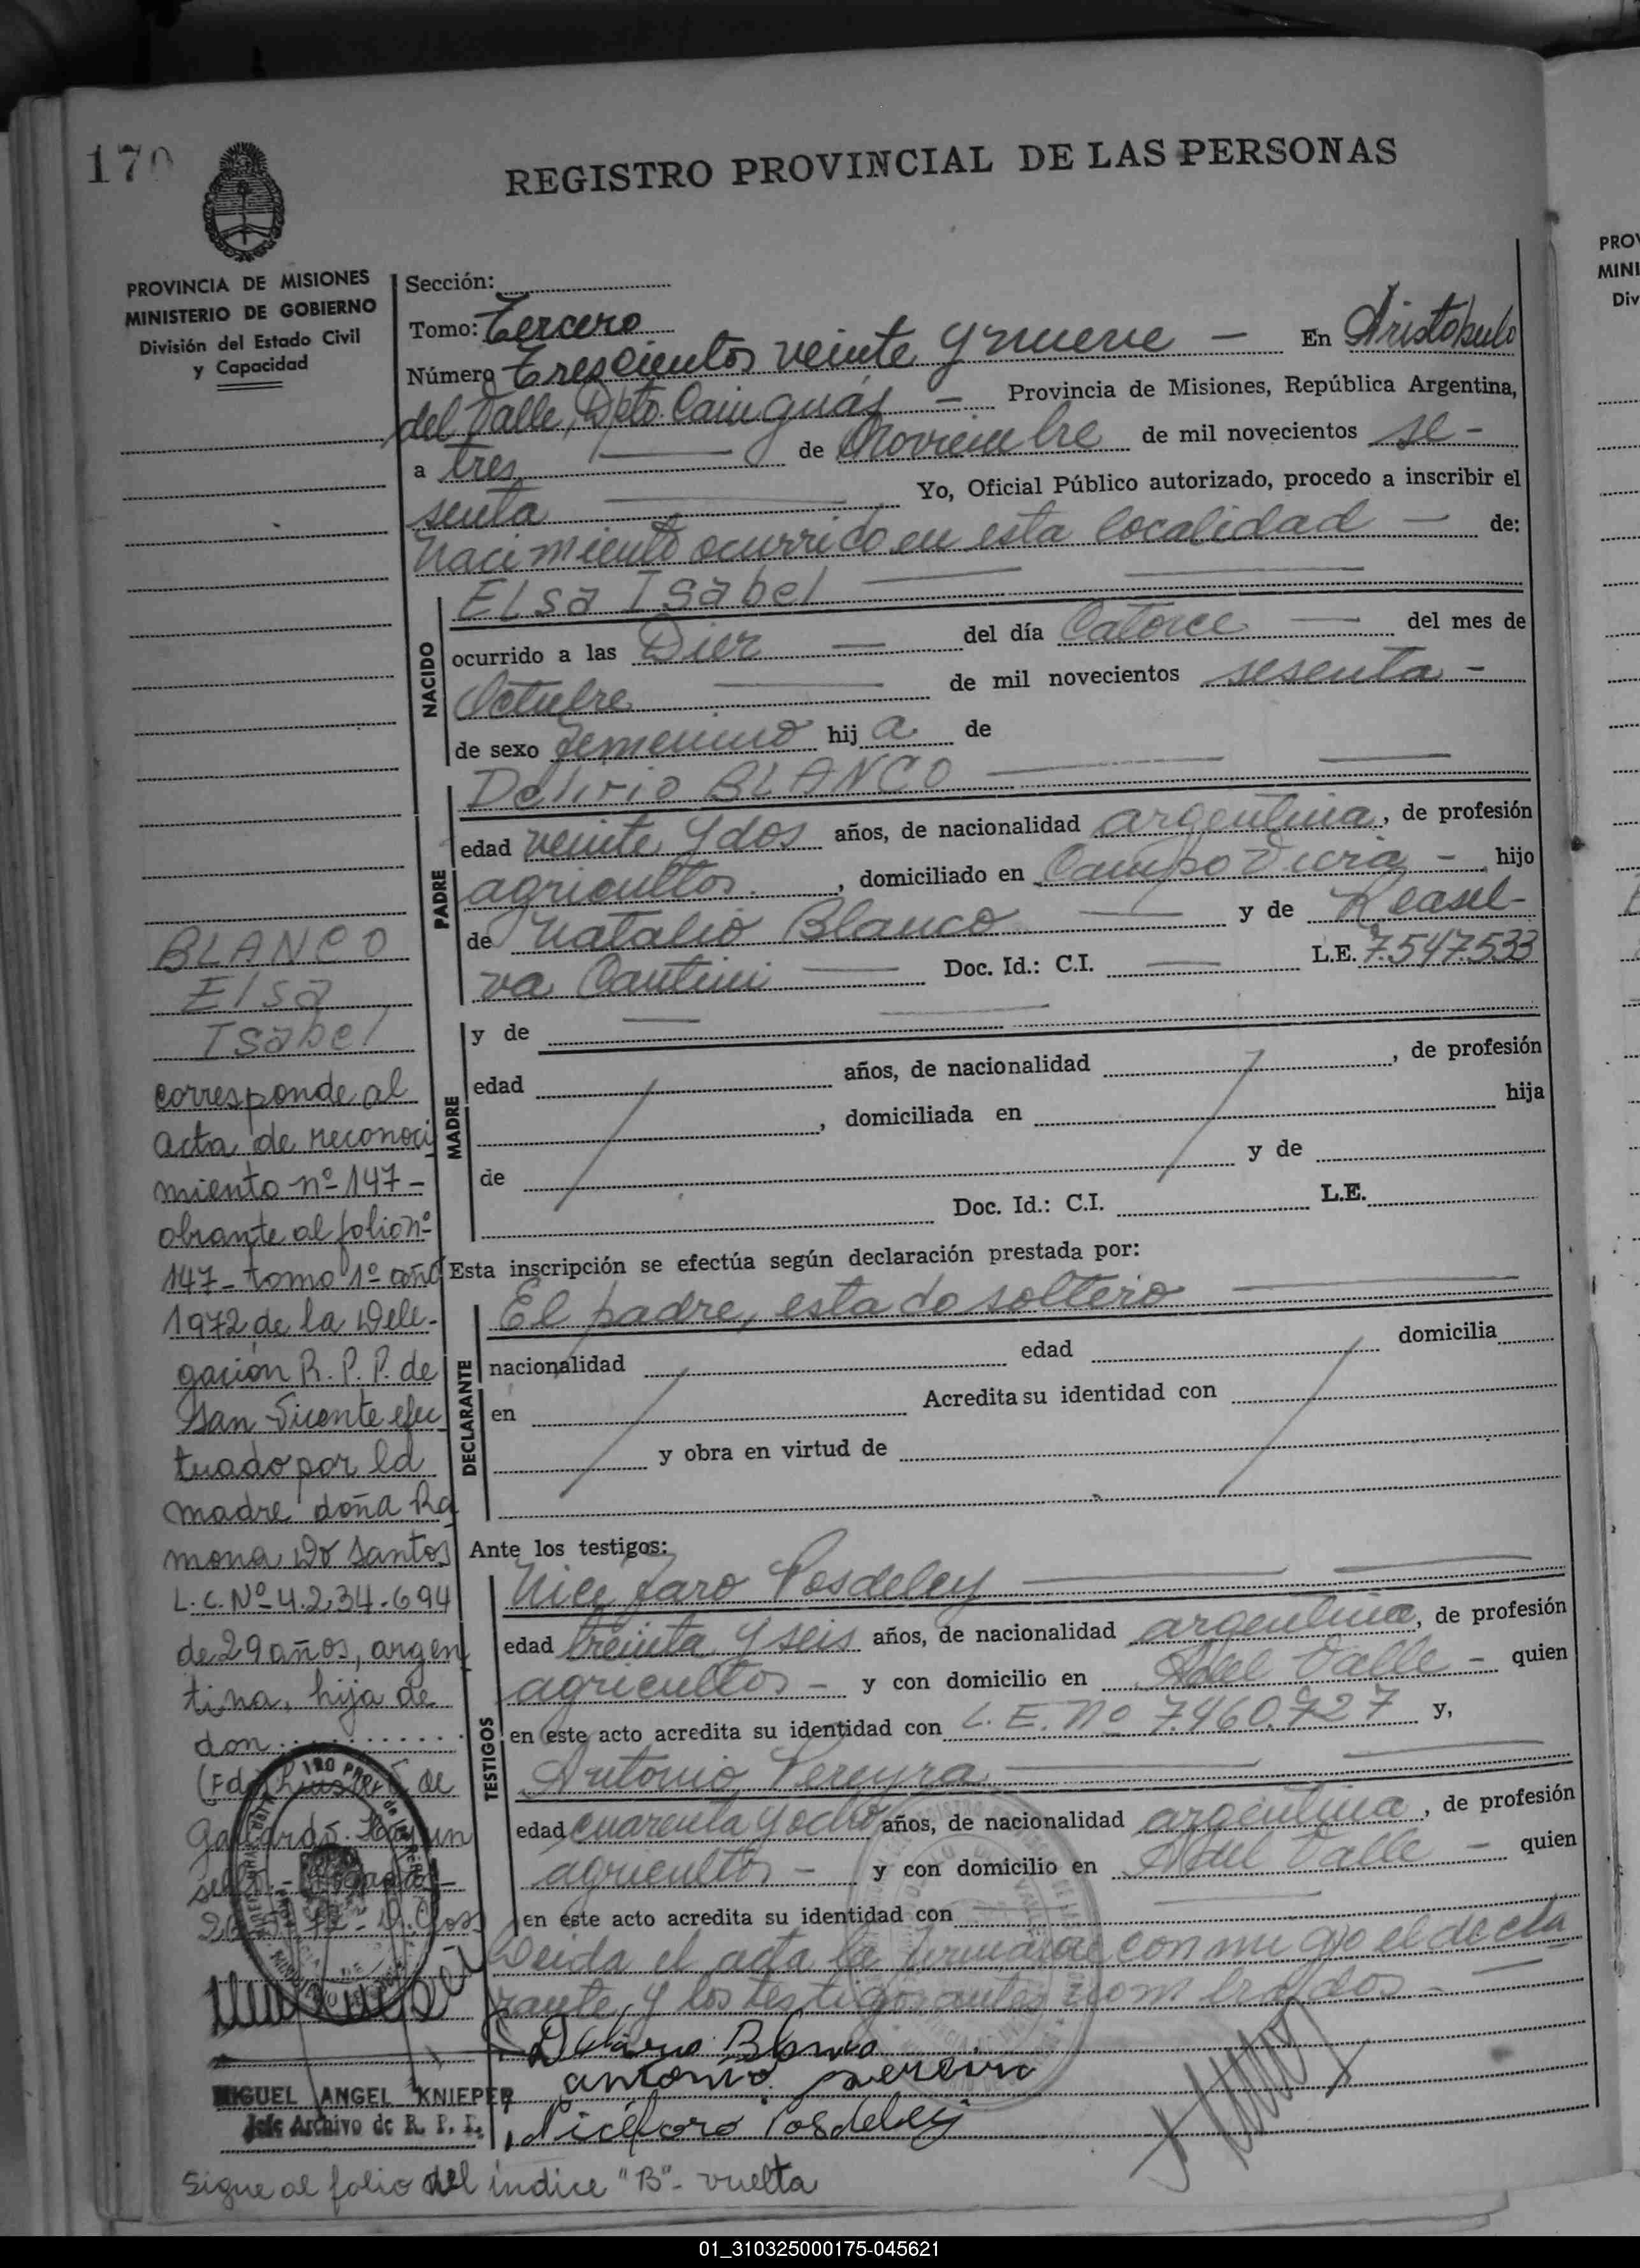 170
REGISTRO PROVINCIAL DE LAS PERSONAS
PROVINCIA DE MISIONES
MINISTERIO DE GOBIERNO
División del Estado Civil
y Capacidad
Sección:
Tomo: Tercero
Número Trescientos veinte y nueve — En Aristobulo
del Valle, Dpto. Cainguás — Provincia de Misiones, República Argentina,
a tres — de Noviembre de mil novecientos se-
senta — Yo, Oficial Público autorizado, procedo a inscribir el
Nacimiento ocurrido en esta localidad — de:
NACIDO
Elsa Isabel
ocurrido a las Diez — del día Catorce — del mes de
Octubre — de mil novecientos sesenta -
de sexo femenino hij a de
PADRE
BLANCO
edad veinte y dos años, de nacionalidad argentina, de profesión
agricultor, domiciliado en Campo Viera - hijo
de Natalio Blanco — y de
va — Doc. Id.: C.I. — L.E. 7.547.533
MADRE
y de —
edad años, de nacionalidad , de profesión
, domiciliada en hija
de y de
Doc. Id.: C.I. L.E.
Esta inscripción se efectúa según declaración prestada por:
DECLARANTE
El padre, estado soltero —
nacionalidad edad domicilia
en Acredita su identidad con
y obra en virtud de
Ante los testigos:
TESTIGOS
Posdeley
edad treinta y seis años, de nacionalidad argentina, de profesión
agricultor - y con domicilio en A. del Valle - quien
en este acto acredita su identidad con L.E. Nº 7.460.727 y,
Antonio Pereyra —
edad cuarenta y ocho años, de nacionalidad argentina, de profesión
agricultor - y con domicilio en A. del Valle - quien
en este acto acredita su identidad con —
Leida el acta la firmaron conmigo el decla
rante y los testigos antes nombrados -
Blanco
antonio pereira
Posdeley
BLANCO
Elsa
Isabel
corresponde al
acta de reconoci
miento nº 147-
obrante al folio nº
147- tomo 1º año
1972 de la Dele-
gación R. P. P. de
San Vicente efec
tuado por la
madre doña Ra
mona Do Santos
L. C. Nº 4.234.694
de 29 años, argen
tina, hija de
don..........
de
MIGUEL ANGEL KNIEPER
Jefe Archivo de R. P. P.
Sigue al folio del indice "B"- vuelta
PROV
MINI
Div
01_310325000175-045621